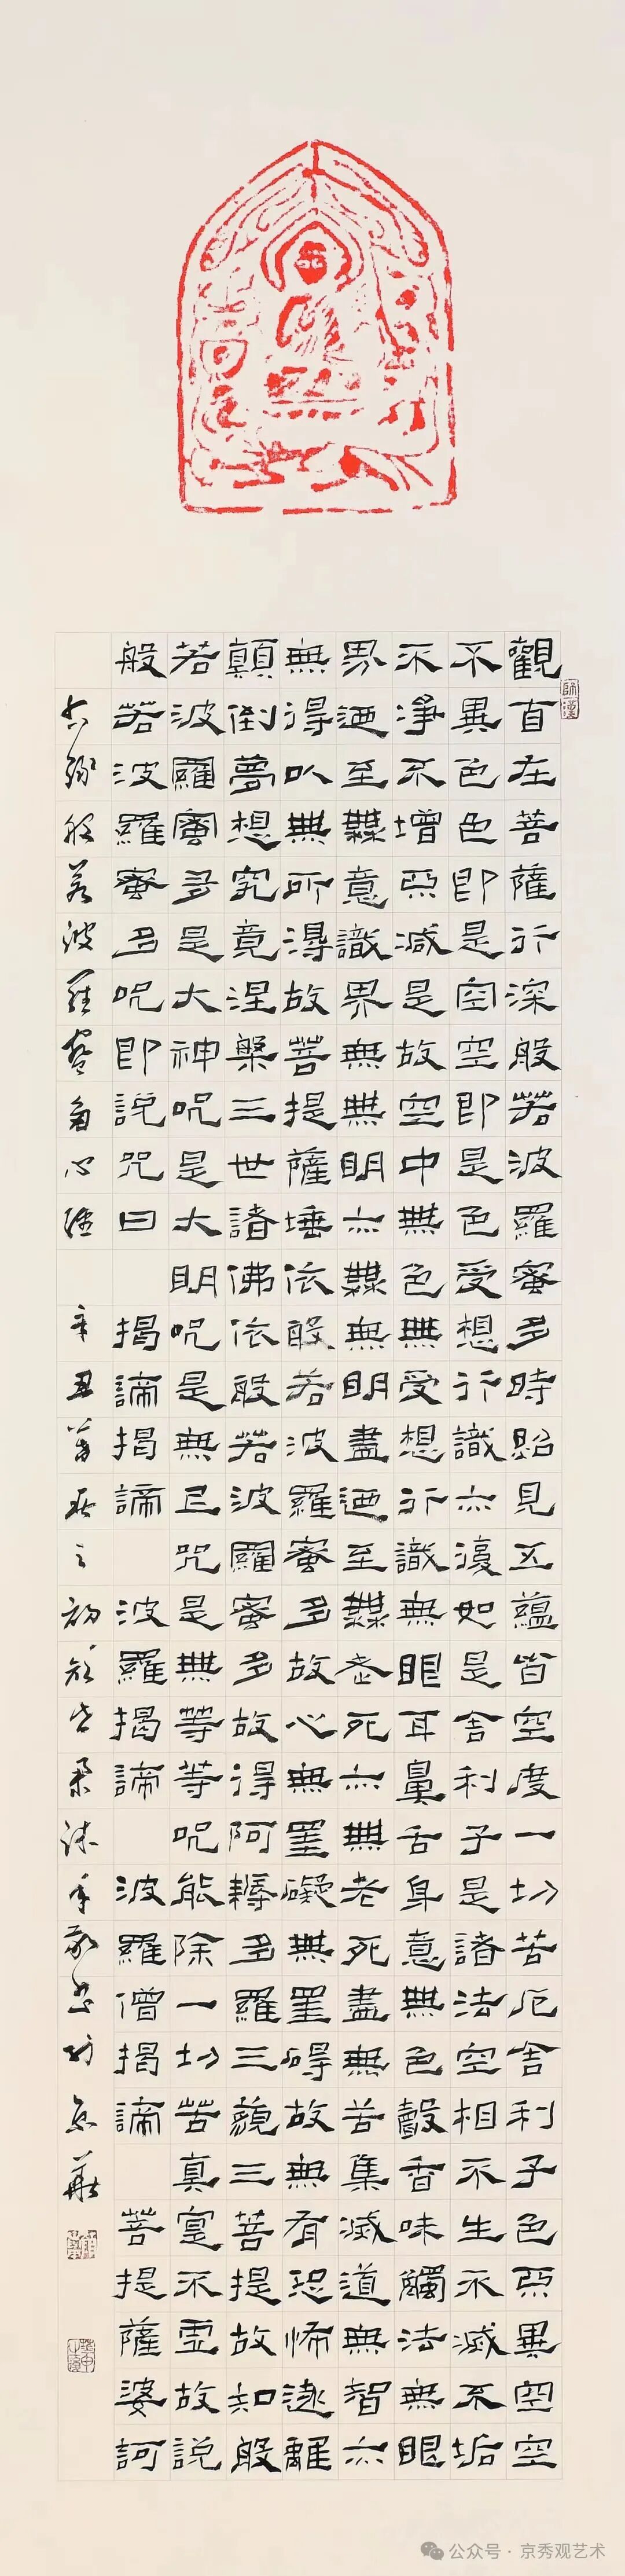 師漢
觀自在菩薩行深般若波羅蜜多時照見五蘊皆空度一切苦厄舍利子色不異空空
不異色色即是空空即是色受想行識亦復如是舍利子是諸法空相不生不滅不垢
不淨不增不減是故空中無色無受想行識無眼耳鼻舌身意無色聲香味觸法無眼
界迺至無意識界無無明亦無無明盡迺至無老死亦無老死盡無苦集滅道無智亦
無得以無所得故菩提薩埵依般若波羅蜜多故心無罣礙無罣碍故無有恐怖遠離
顛倒夢想究竟涅槃三世諸佛依般若波羅蜜多故得阿耨多羅三藐三菩提故知般
若波羅蜜多是大神咒是大明咒是無上咒是無等等咒能除一切苦真實不虛故說
般若波羅蜜多咒即說咒曰 揭諦揭諦 波羅揭諦 波羅僧揭諦 菩提薩婆訶
右錄般若波羅蜜多心經 辛丑 之初 敬書於京華
公众号·京秀观艺术